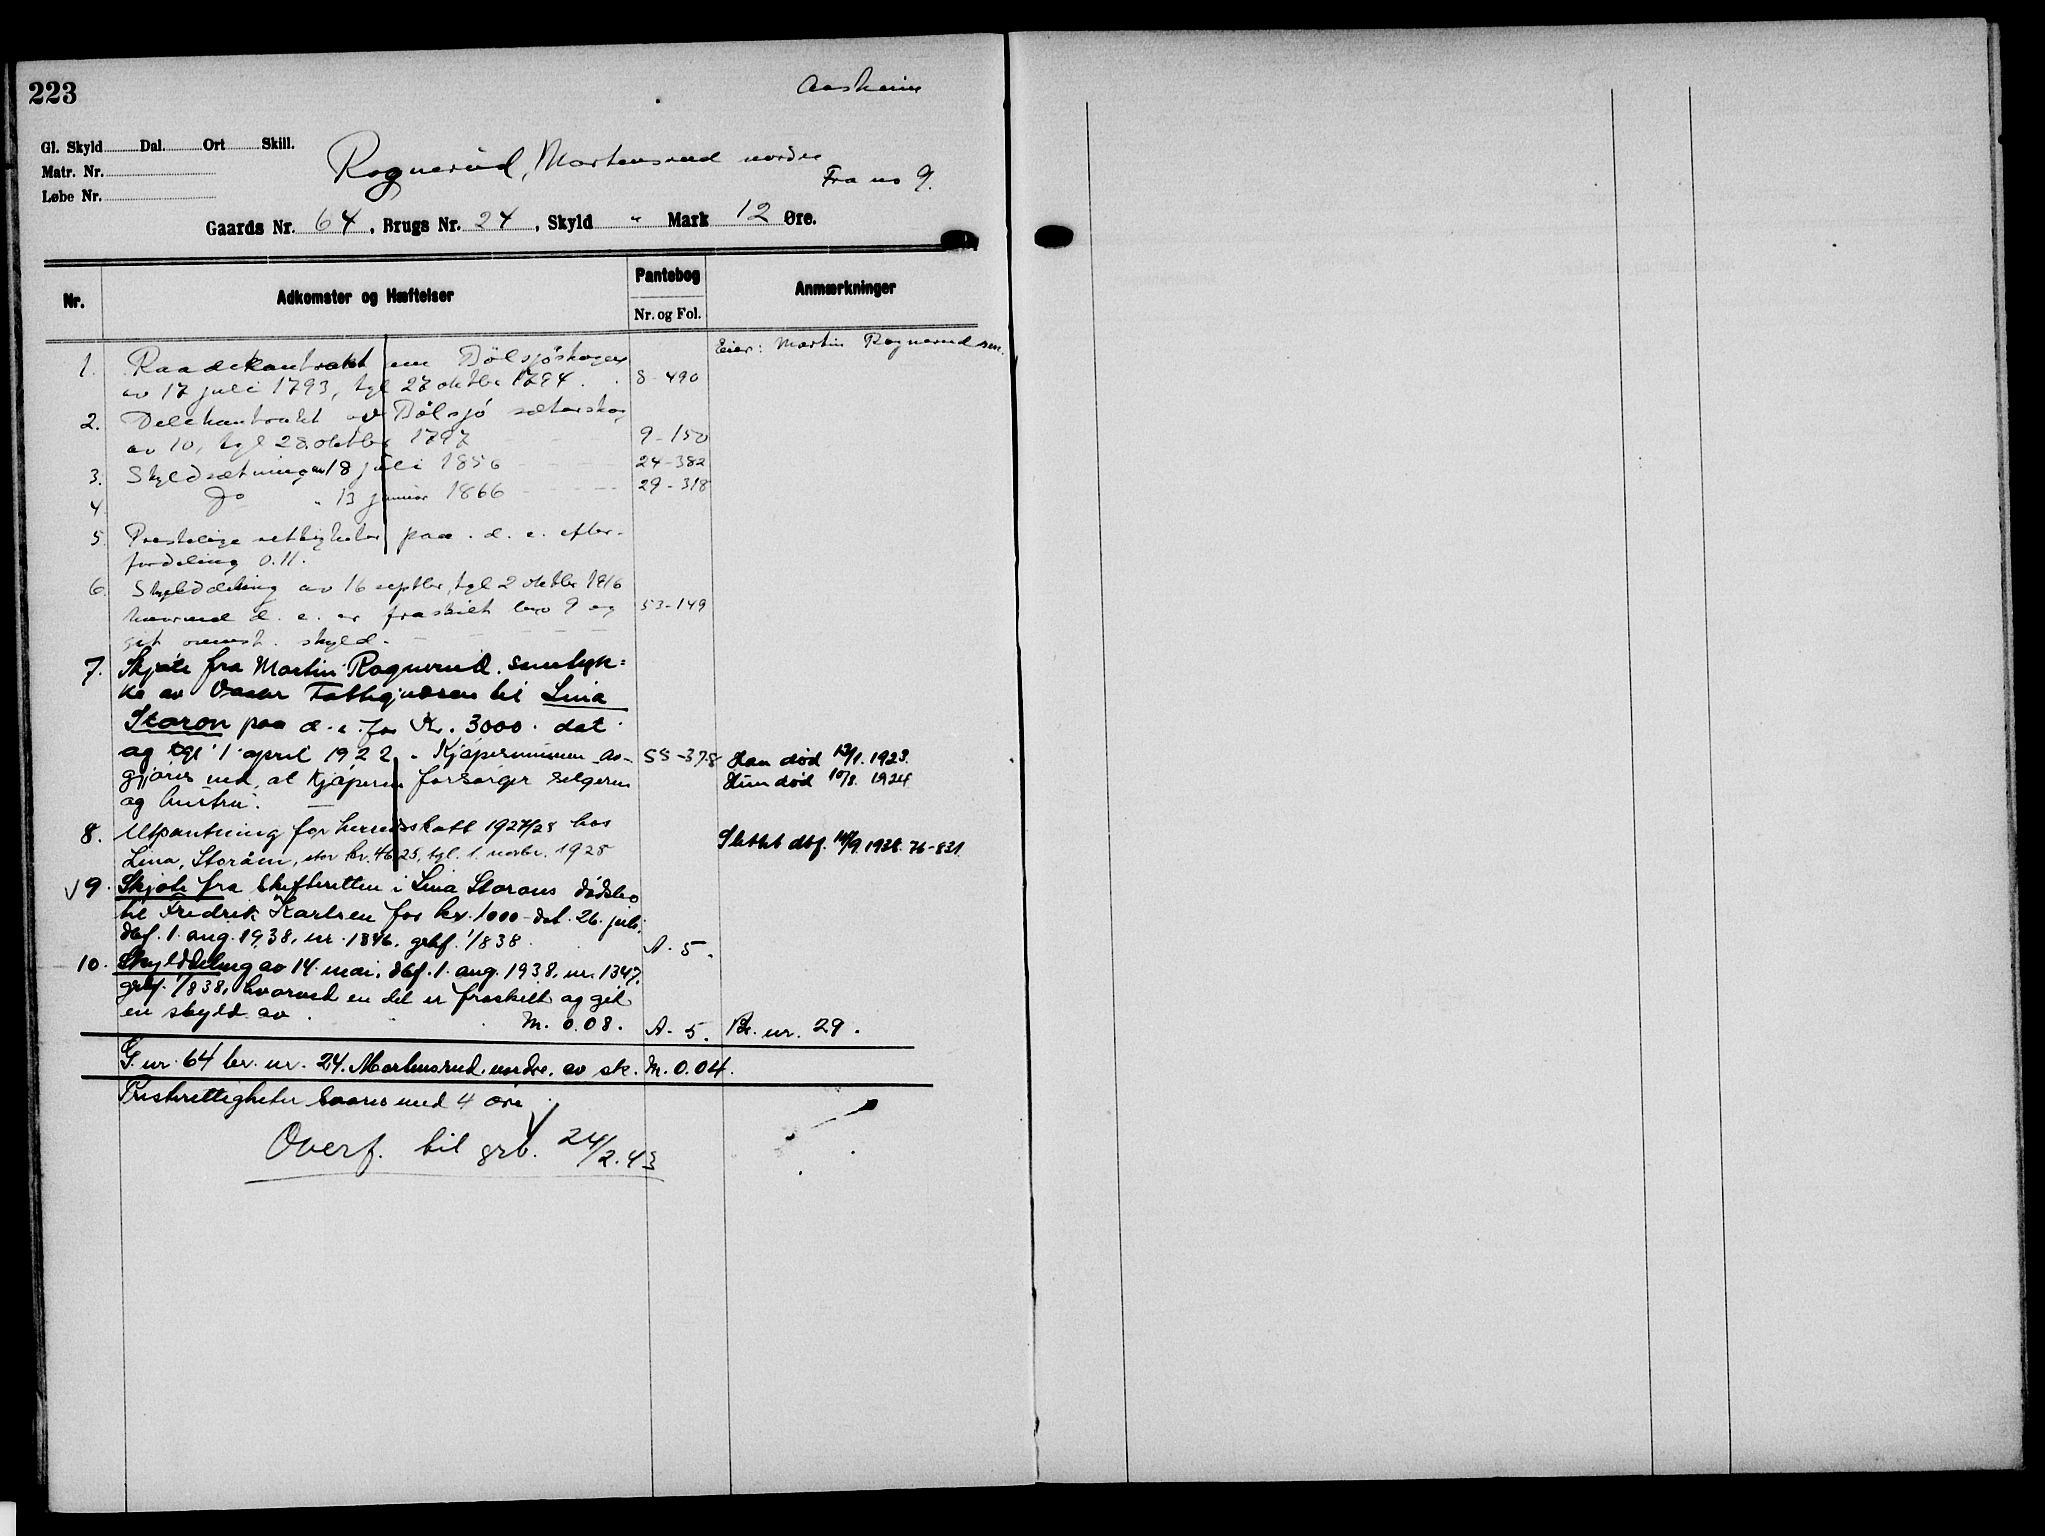 223
Aasheim
Gl. Skyld Dal. Ort Skill.
Matr. Nr.
Løbe Nr.
Rognerud, Martensrud nordre
Fra no 9.
Gaards Nr. 64, Brugs Nr. 24, Skyld " Mark 12 Øre.
Nr. Adkomster og Hæftelser Pantebog Nr. og Fol. Anmærkninger
Eier: Martin Rognerud sen.
1. Raadekontrakt om Bölsjöskogen
av 17 juli 1793, tgl 27 oktbr 1794. 8-490
2. Delekontrakt ov Bölsjö sæterskog
av 10, tgl 28 oktbr 1797 9-150
3. Skyldsætning av 18 juli 1856 24-382
4. Do " 13 januar 1866 29-318
5. Prestelige rettigheter paa d. e. efter
fordeling 0.11.
6. Skylddeling av 16 septbr, tgl 2 oktbr 1916
hvorved d. e. er fraskilt bno 9 og 53-149
git ovenst. skyld.
7. Skjøte fra Martin Rognerud samtyk=
ke av Vaaler Fattigvæsen til Lina
Storøn paa d. e. for Kr. 3000. dat
og tgl 1 april 1922. Kjøpesummen av- 58-378 Han død 13/1. 1923.
gjøres ved, at kjøperen forsørger selgeren Hun død 10/8. 1924
og hustru.
8. Utpantning for herredsskatt 1927/28 hos
Lina Storåen, stor kr. 46,25, tgl. 1. novbr. 1928 Slettet dbf. 14/9 1938. 76-831.
9. Skjøte fra Skifteretten i Lina Storøns dødsbo
til Fredrik Karlsen for kr. 1000 - dat. 26. juli,
dbf. 1. aug. 1938, nr. 1346, grbf. 1/838. A. 5.
10. Skylddeling av 14. mai, dbf. 1. aug. 1938, nr. 1347,
grbf. 1/838, hvorved en del er fraskilt og git
en skyld av M. 0.08. A. 5. Br. nr. 29.
G. nr. 64 br. nr. 24. Martinsrud nordre, av sk. M. 0.04.
Presterettigheter svares med 4 øre
Overf. til grb. 24/2. 43